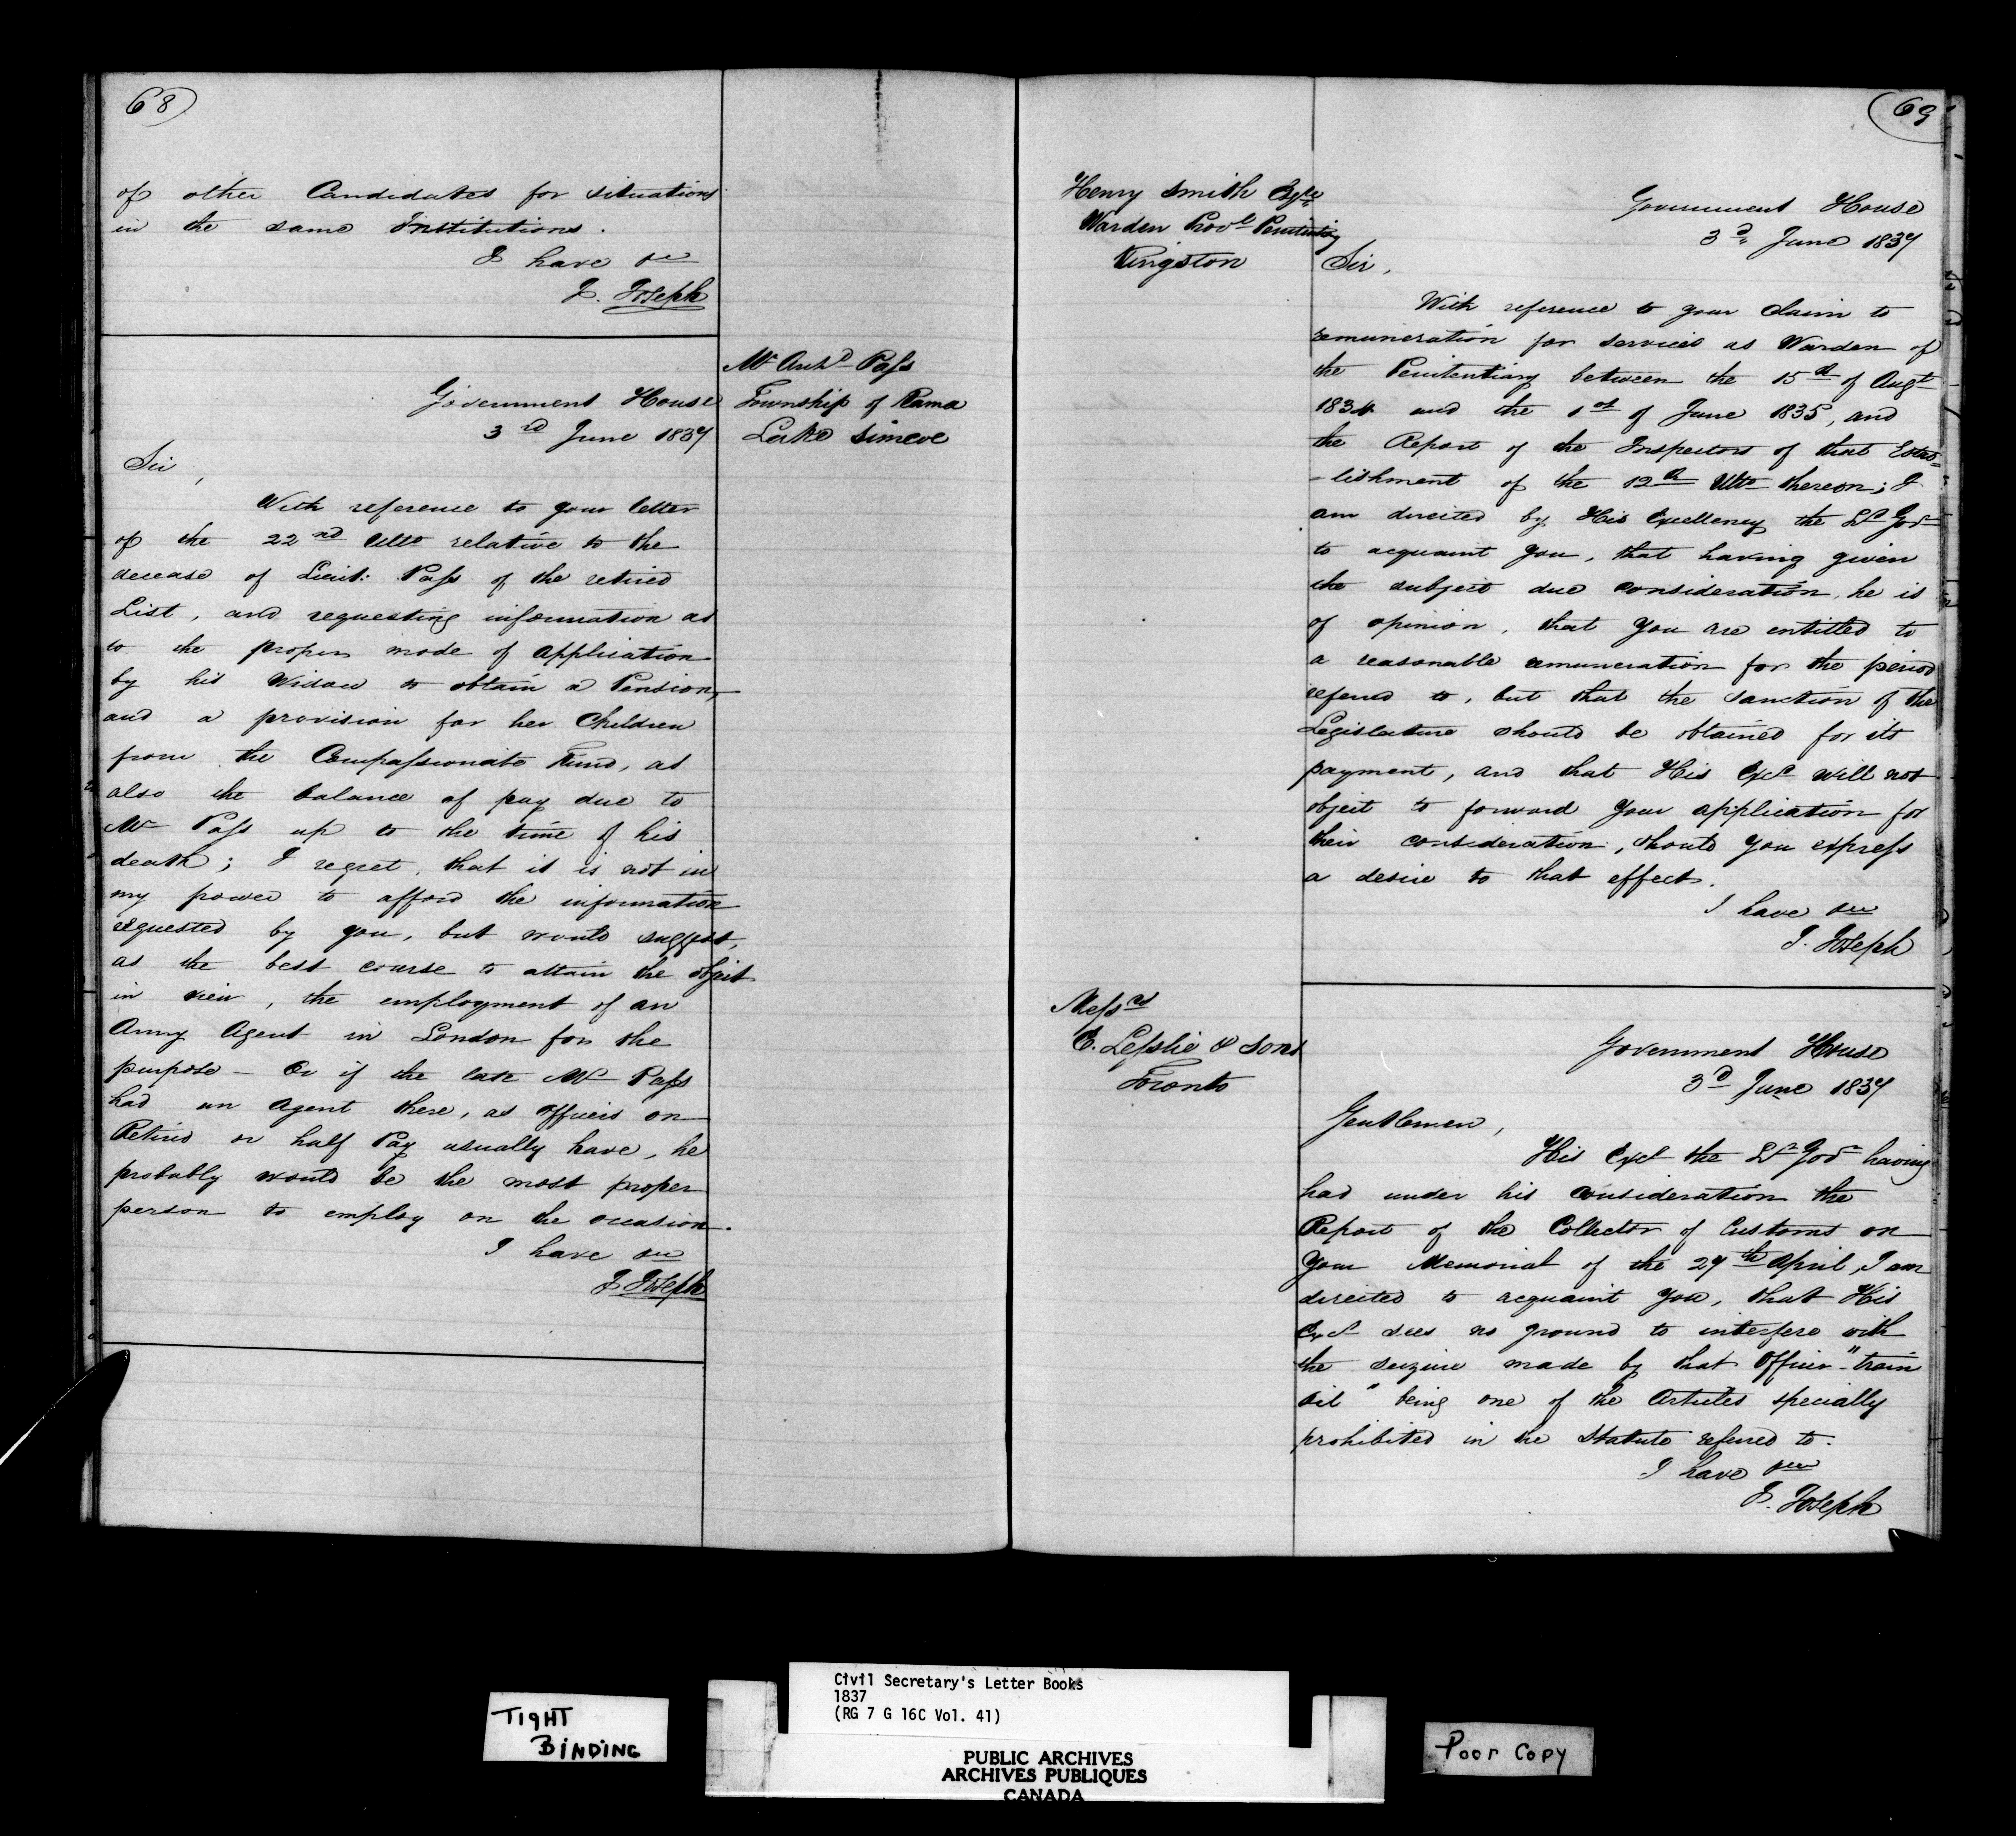 68
of other Candidates for situations
in the same Institutions.
I have &c
J. Joseph
Mr Anth'd Pass
Township of Rama
Lake Simcoe
Government House
3rd June 1837
Sir,
With reference to your letter
of the 22nd Ulto relative to the
decease of Lieut: Pass of the retired
List, and requesting information as
to the proper mode of application
by his Widow to obtain a Pension,
and a provision for her Children
from the Compassionate Fund, as
also the balance of pay due to
Mr Pass up to the time of his
death; I regret, that it is not in
my power to afford the information
requested by you, but would suggest,
as the best course to attain the object
in view, the employment of an
Army Agent in London for the
purpose – Or if the late Mr Pass
had an Agent there, as officers on
Retired or half Pay usually have, he
probably would be the most proper
person to employ on the occasion.
I have &c
J. Joseph
69
Henry Smith Esqre
Warden Provl Penitenty
Kingston
Government House
3d June 1837
Sir,
With reference to your Claim to
remuneration for services as Warden of
the Penitentiary between the 15th of Augt
1834 and the 1st of June 1835, and
the Report of the Inspectors of that Estab=
-lishment of the 12th Ulto thereon; I
am directed by His Excellency the Lt Govr
to acquaint you, that having given
the subject due consideration, he is
of opinion, that you are entitled to
a reasonable remuneration for the period
referred to, but that the sanction of the
Legislature should be obtained for its
payment, and that His Excy will not
object to forward your application for
their consideration, should you express
a desire to that effect.
I have &c
J. Joseph
Messrs
E. Lesslie & Sons
Toronto
Government House
3d June 1837
Gentlemen,
His Excy the Lt Govr having
had under his consideration the
Report of the Collector of Customs on
your Memorial of the 27th April, I am
directed to acquaint you, that His
Excy sees no ground to interfere with
the seizure made by that Officer – "train
oil" being one of the Articles specially
prohibited in the Statute referred to.
I have &c
J. Joseph
TIGHT
BINDING
Civil Secretary's Letter Books
1837
(RG 7 G 16C Vol. 41)
PUBLIC ARCHIVES
ARCHIVES PUBLIQUES
CANADA
Poor Copy